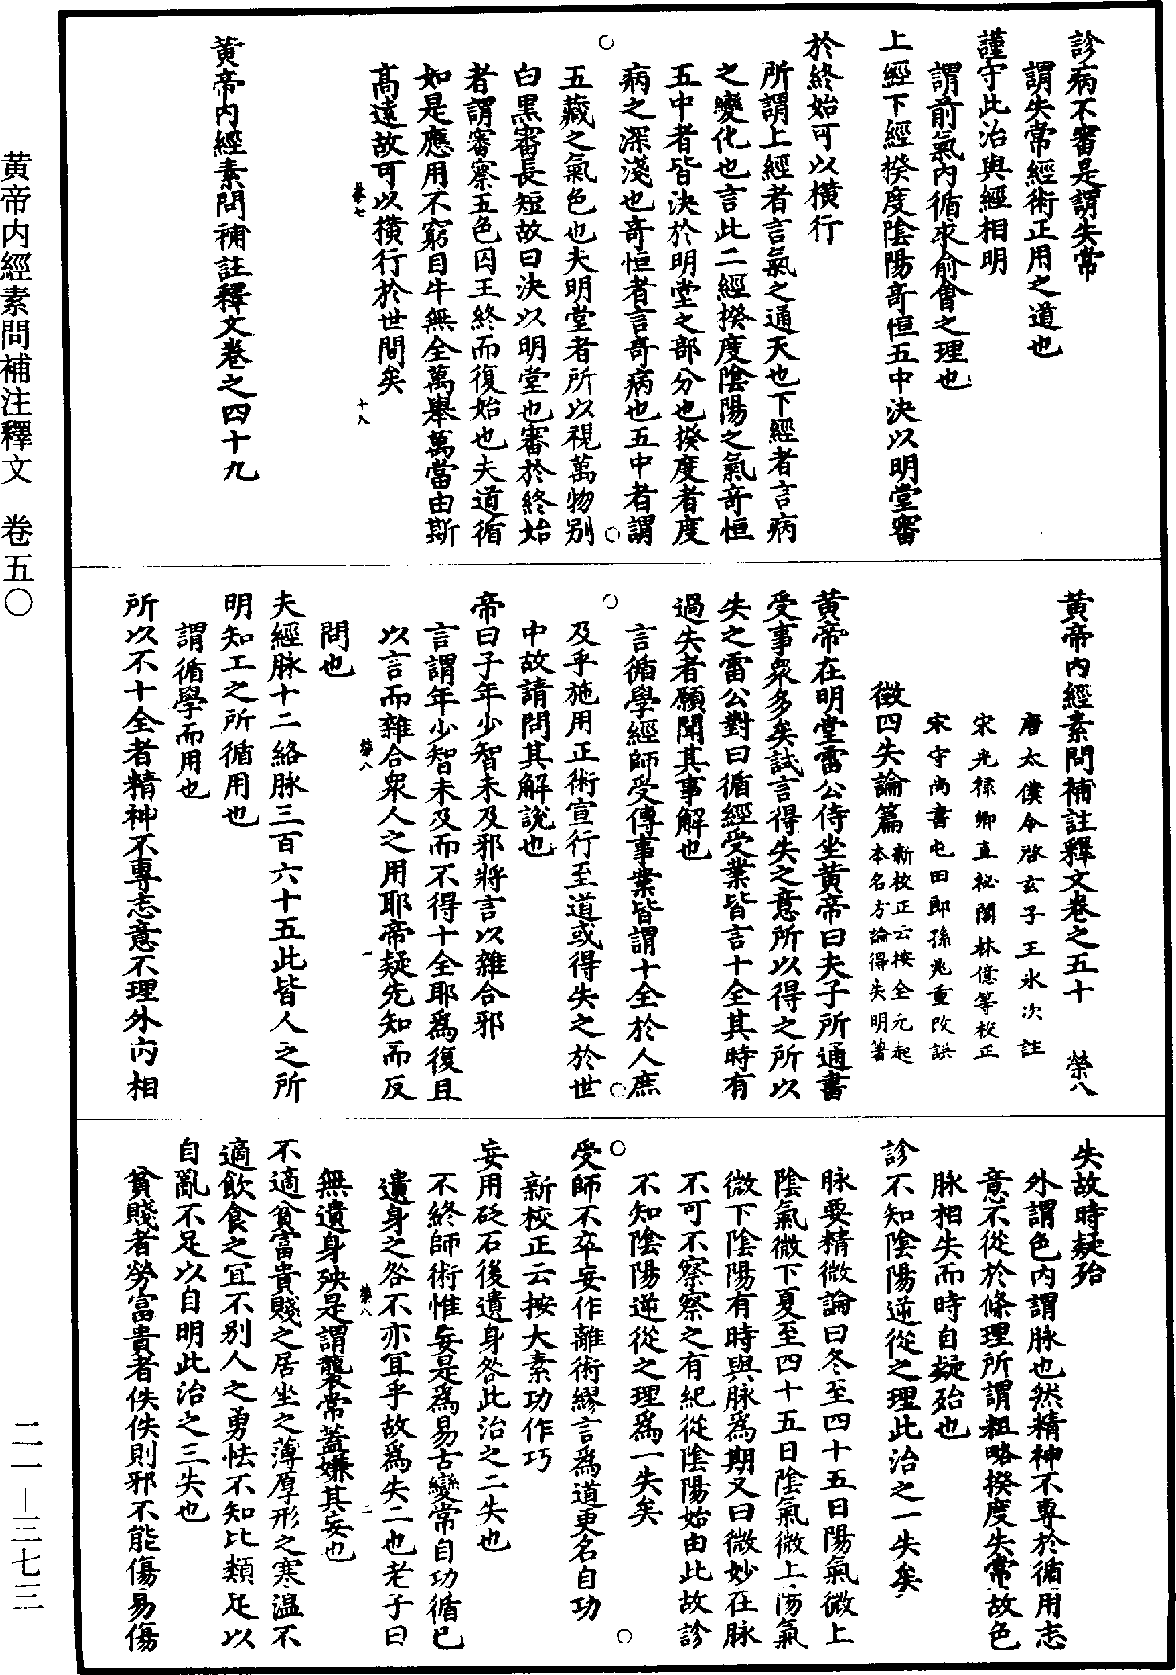 診病不審是謂失常
謂失常經術正用之道也
謹守此治與經相明
謂前氣內循求俞會之理也
上經下經揆度陰陽奇恒五中決以明堂審
於終始可以橫行
所謂上經者言氣之通天也下經者言病
之變化也言此二經揆度陰陽之氣奇恒
五中者皆決於明堂之部分也揆度者度
病之深淺也奇恒者言奇病也五中者謂
五藏之氣色也夫明堂者所以視萬物別
白黑審長短故曰決以明堂也審於終始
者謂審察五色囚王終而復始也夫道循
如是應用不窮目牛無全萬舉萬當由斯
高遠故可以橫行於世間矣
榮七 十八
黃帝內經素問補註釋文卷之四十九
黃帝內經素問補註釋文卷之五十 榮八
唐太僕令啓玄子王冰次註
宋光祿卿直秘閣林億等校正
宋守尚書屯田郎孫兆重改誤
徵四失論篇新校正云按全元起
本名方論得失明著
黃帝在明堂雷公侍坐黃帝曰夫子所通書
受事眾多矣試言得失之意所以得之所以
失之雷公對曰循經受業皆言十全其時有
過失者願聞其事解也
言循學經師受傳事業皆謂十全於人庶
及乎施用正術宣行至道或得失之於世
中故請問其解說也
帝曰子年少智未及邪將言以雜合邪
言謂年少智未及而不得十全耶為復且
以言而雜合眾人之用耶帝疑先知而反
榮八 一
問也
夫經脉十二絡脉三百六十五此皆人之所
明知工之所循用也
謂循學而用也
所以不十全者精神不專志意不理外內相
失故時疑殆
外謂色內謂脉也然精神不專於循用志
意不從於條理所謂粗略揆度失常故色
脉相失而時自疑殆也
診不知陰陽逆從之理此治之一失矣
脉要精微論曰冬至四十五日陽氣微上
陰氣微下夏至四十五日陰氣微上陽氣
微下陰陽有時與脉為期又曰微妙在脉
不可不察察之有紀從陰陽始由此故診
不知陰陽逆從之理為一失矣
受師不卒妄作離術繆言為道更名自功
新校正云按大素功作巧
妄用砭石後遺身咎此治之二失也
不終師術惟妄是為易古變常自功循已
遺身之咎不亦宜乎故為失二也老子曰
榮八 二
無遺身殃是謂襲常蓋嫌其妄也
不適貧富貴賤之居坐之薄厚形之寒溫不
適飲食之宜不別人之勇怯不知比類足以
自亂不足以自明此治之三失也
貧賤者勞富貴者佚佚則邪不能傷易傷
黃帝內經素問補注釋文 卷五〇
二一—三七三